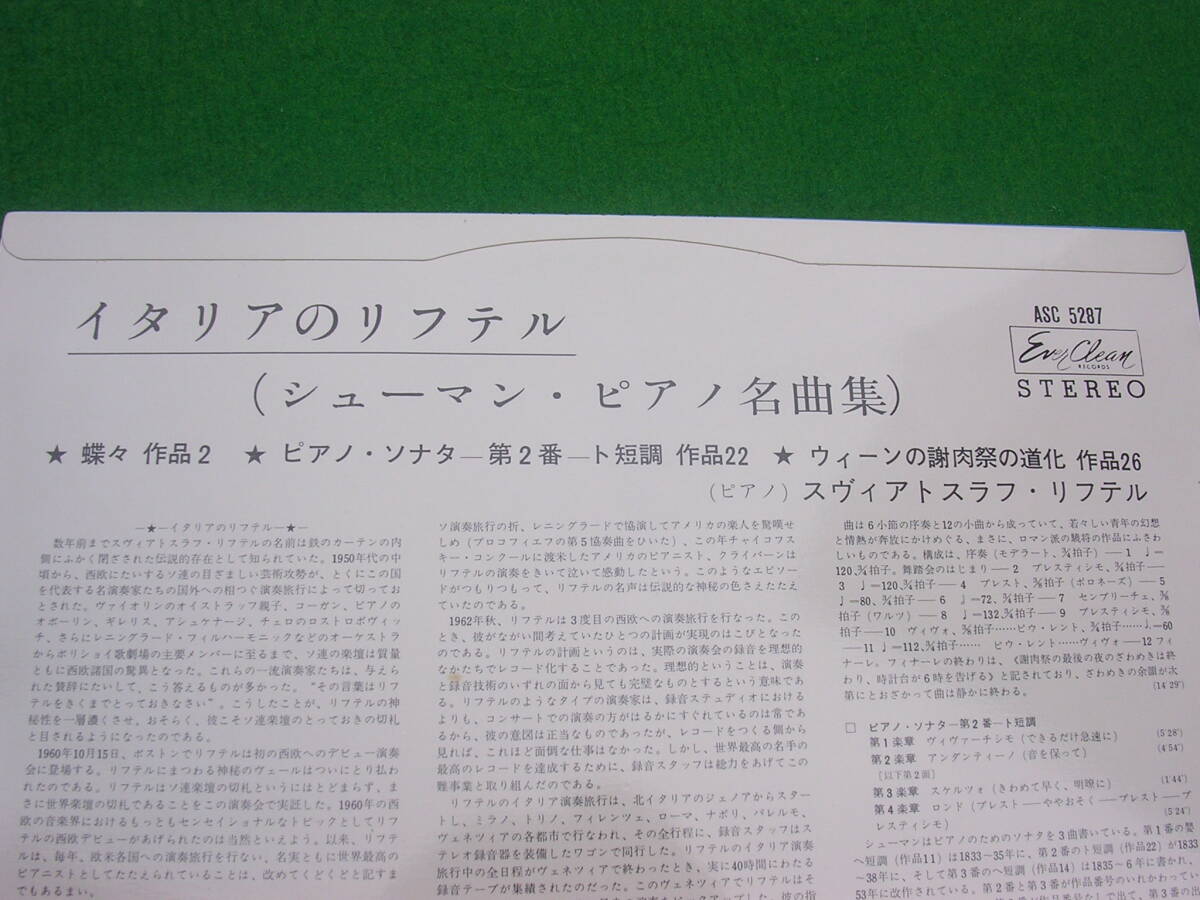 イタリアのリフテル
(シューマン・ピアノ名曲集)
ASC 5287
Ever Clean
RECORDS
STEREO
★ 蝶々 作品2 ★ ピアノ・ソナタ—第2番—ト短調 作品22 ★ ウィーンの謝肉祭の道化 作品26
(ピアノ) スヴィアトスラフ・リフテル
—★—イタリアのリフテル—★—
数年前までスヴィアトスラフ・リフテルの名前は鉄のカーテンの内
側にふかく閉ざされた伝説的存在として知られていた。1950年代の中
頃から、西欧にたいするソ連の目ざましい芸術攻勢が、とくにこの国
を代表する名演奏家たちの国外への相つぐ演奏旅行によって切ってお
とされた。ヴァイオリンのオイストラッフ親子、コーガン、ピアノの
オボーリン、ギレリス、アシュケナージ、チェロのロストロボヴィッ
チ、さらにレニングラード・フィルハーモニックなどのオーケストラ
からボリショイ歌劇場の主要メンバーに至るまで、ソ連の楽壇は質量
ともに西欧諸国の驚異となった。これらの一流演奏家たちは、与えら
れた賛辞にたいして、こう答えるものが多かった。“その言葉はリフ
テルをきくまでとっておきなさい”。こうしたことが、リフテルの神
秘性を一層濃くさせ、おそらく、彼こそソ連楽壇のとっておきの切札
と目されるようになったのである。
1960年10月15日、ボストンでリフテルは初の西欧へのデビュー演奏
会に登場する。リフテルにまつわる神秘のヴェールはついにとり払わ
れたのである。リフテルはソ連楽壇の切札というにはとどまらず、ま
さに世界楽壇の切札であることをこの演奏会で実証した。1960年の西
欧の音楽界におけるもっともセンセイショナルなトピックとしてリフ
テルの西欧デビューがあげられたのは当然といえよう。以来、リフテ
ルは、毎年、欧米各国への演奏旅行を行ない、名実ともに世界最高の
ピアニストとしてたたえられていることは、改めてくどくどと記すま
でもあるまい。
ソ演奏旅行の折、レニングラードで協演してアメリカの楽人を驚嘆せ
しめ(プロコフィエフの第5協奏曲をひいた)、この年チャイコフス
キー・コンクールに渡米したアメリカのピアニスト、クライバーンは
リフテルの演奏をきいて泣いて感動したという。このようなエピソー
ドがつもりつもって、リフテルの名声は伝説的な神秘の色さえたたえ
ていたのである。
1962年秋、リフテルは3度目の西欧への演奏旅行を行なった。この
とき、彼がながい間考えていたひとつの計画が実現のはこびとなった
のである。リフテルの計画というのは、実際の演奏会の録音を理想的
なかたちでレコード化することであった。理想的ということは、演奏
と録音技術のいずれの面から見ても完璧なものとするという意味であ
る。リフテルのようなタイプの演奏家は、録音ステュディオにおける
よりも、コンサートでの演奏の方がはるかにすぐれているのは常であ
るから、彼の意図は正当なものであったが、レコードをつくる側から
見れば、これほど面倒な仕事はなかった。しかし、世界最高の名手の
最高のレコードを達成するために、録音スタッフは総力をあげてこの
難事業と取り組んだのである。
リフテルのイタリア演奏旅行は、北イタリアのジェノアからスター
トし、ミラノ、トリノ、フィレンツェ、ローマ、ナポリ、パレルモ、
ヴェネツィアの各都市で行なわれ、その全行程に、録音スタッフはス
テレオ録音器を装備したワゴンで同行した。リフテルのイタリア演奏
旅行中の全日程がヴェネツィアで終わったとき、実に40時間にわたる
録音テープが集績されたのだった。このヴェネツィアでリフテルはそ
曲は6小節の序奏と12の小曲から成っていて、若々しい青年の幻想
と情熱が奔放にかけめぐる、まさに、ロマン派の驍将の作品にふさわ
しいものである。構成は、序奏(モデラート、¾拍子)—1 ♩=
120、¾拍子。舞踏会のはじまり—2 プレスティシモ、¾拍子—
3 ♩=120、¾拍子—4 プレスト、¾拍子(ポロネーズ)—5
♩=80、¾拍子—6 ♩=72、¾拍子—7 センプリーチェ、¾
拍子(ワルツ)—8 ♩=132、¾拍子—9 プレスティシモ、¾
拍子—10 ヴィヴォ、¾拍子……ピウ・レント、¾拍子……♩=60
—11 ♩=112、¾拍子…… ピウ・レント……ヴィヴォ—12 フィ
ナーレ。フィナーレの終わりは、《謝肉祭の最後の夜のざわめきは終
わり、時計台が6時を告げる》と記されており、ざわめきの余韻が次
第にとおざかって曲は静かに終わる。 (14′29″)
□ ピアノ・ソナタ—第2番—ト短調
第1楽章 ヴィヴァーチシモ(できるだけ急速に) (5′28″)
第2楽章 アンダンティーノ(音を保って) (4′54″)
[以下第2面]
第3楽章 スケルツォ(きわめて早く、明瞭に) (1′44″)
第4楽章 ロンド(プレスト——ややおそく—プレスト—プ
レスティシモ) (5′24″)
シューマンはピアノのためのソナタを3曲書いている。第1番の嬰
ヘ短調(作品11)は1833〜35年に、第2番のト短調(作品22)が1833
〜38年に、そして第3番のヘ短調(作品14)は1835〜6年に書かれ、
53年に改作されている。第2番と第3番が作品番号のいれかわってい